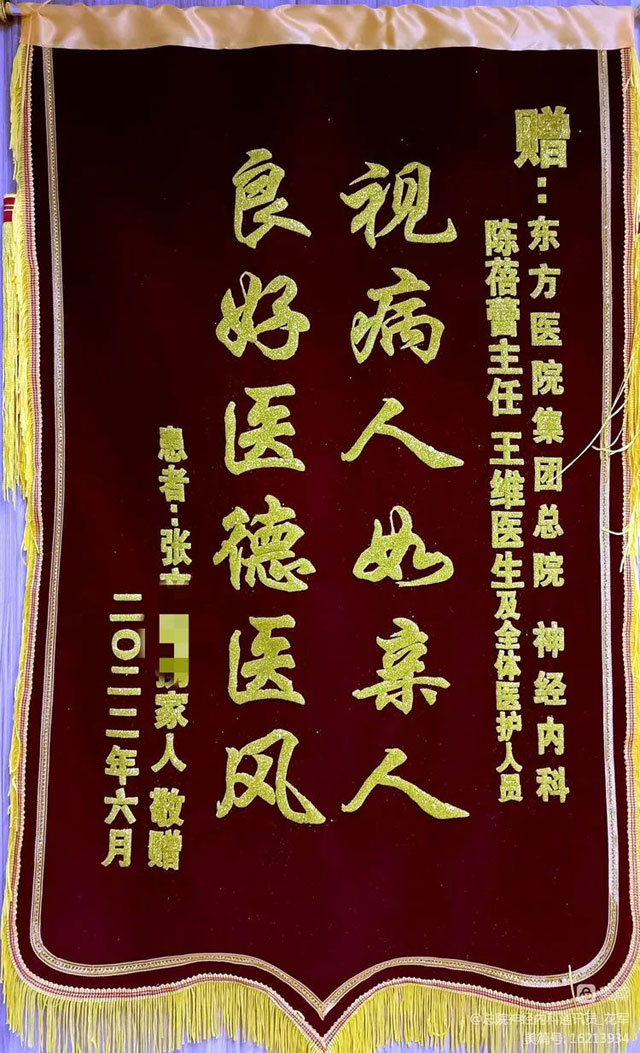 赠：东方医院集团总院 神经内科
陈蓓蕾主任 王维医生及全体医护人员
视病人如亲人
良好医德医风
患者：张 家人 敬赠
二〇二二年六月
美篇号：16213934